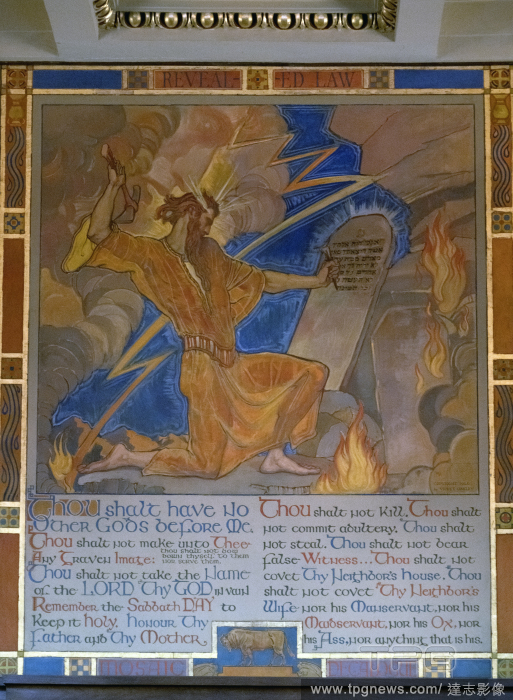 REVEAL-ED LAW
Thou shalt have No
Other Gods before Me.
Thou shalt not make unto Thee
Any Graven Image: thou shalt not bow
down thyself to them
nor serve them.
Thou shalt not take the Name
of the LORD Thy GOD in vain
Remember the Sabbath DAY to
Keep it holy. Honour Thy
Father and Thy Mother.
Thou shalt not Kill. Thou shalt
not commit adultery. Thou shalt
not steal. Thou shalt not bear
false Witness... Thou shalt not
covet Thy Neighbor's house. Thou
shalt not covet Thy Neighbor's
Wife nor his Manservant, nor his
Maidservant, nor his Ox, nor
his Ass, nor anything that is his.
MOSAIC
www.tpgnews.com/達志影像